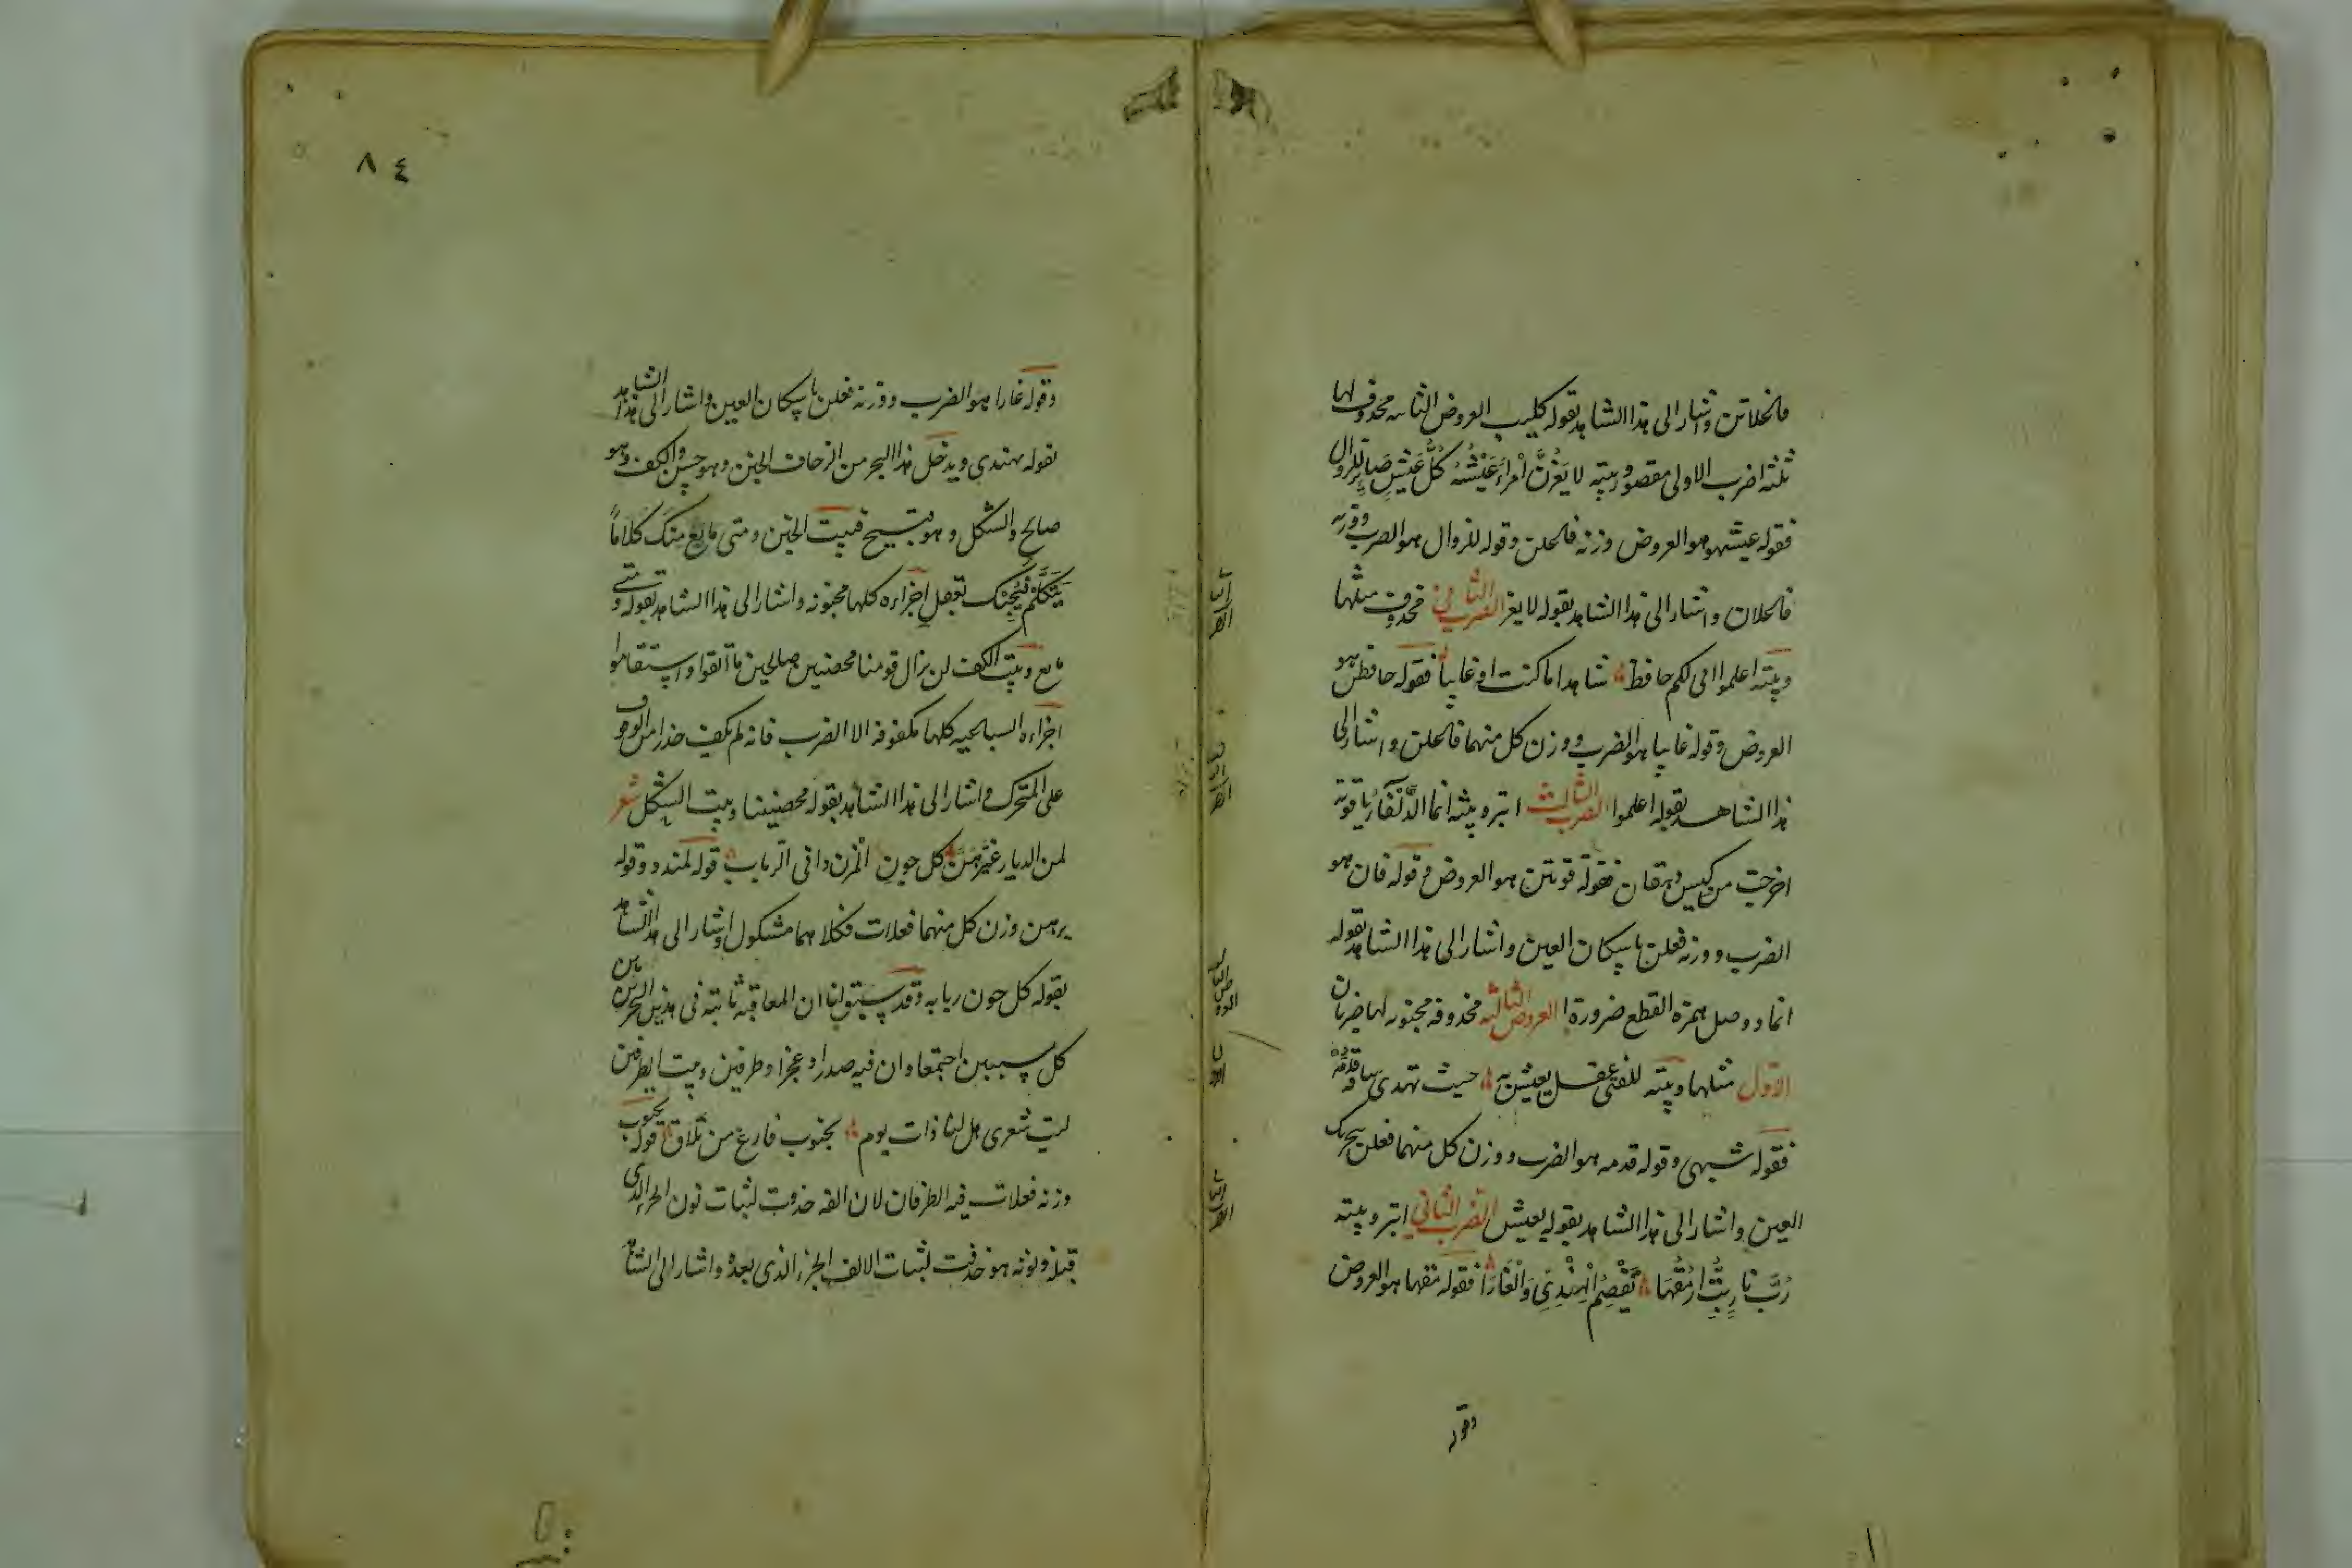 فاعلاتن واشار الى هذا الشاهد بقوله كليب العروض الثانيه محذوفه لها
ثلثة اضرب الاولى مقصور وبيته لا يَغُرَّنَّ امْرأً عَيْشُهُ كُلُّ عَيْشٍ صَايِرٌ لِلزوال
فقوله عيشهو هو العروض وزنه فاعلن وقوله للزوال هو الضرب ووزنه
فاعلان واشار الى هذا الشاهد بقوله لا يغر الضرب الثاني محذوف مثلها
وبيته اعلموا انى لكم حافظ شاهدا ما كنت او غايبا فقوله حافظن هو
العروض وقوله غايبا هو الضرب ووزن كل منهما فاعلن واشار الى
هذا الشاهد بقوله اعلموا الضرب الثالث ابتر وبيته انما الذَّلْفَآءُ ياقوتة
اخرجت من كيس دهقان فقوله قوتتن هو العروض وقوله قان هو
الضرب ووزنه فعلن باسكان العين واشار الى هذا الشاهد بقوله
انما ووصل همزة القطع ضرورة العروض الثالثه محذوفه مخبونه لها ضربان
الاول مثلها وبيته للفتى عقل يعيش به حيث تهدى ساقه قدمه
فقوله شبهى وقوله قدمه هو الضرب ووزن كل منهما فعلن بتحريك
العين واشار الى هذا الشاهد بقوله يعيش الضرب الثاني ابتر وبيته
رُبَّ نار بِتُّ ارْمُقُهَا تَقْضِمُ الْهِنْدِىَّ وَالْغَارَا فقوله مقها هو العروض
وقوله
٨٤
وقوله غارا هو الضرب ووزنه فعلن باسكان العين واشار الى هذا الشاهد
بقوله هندى ويدخل هذا البحر من الزحاف الخبن وهو حسن والكف وهو
صالح والشكل وهو قبيح فبيت الخبن ومتى ما يع منك كلاماً
يَتَكَلَّمْ فيُجِبْك بعقل اجزاءه كلها مخبونه واشار الى هذا الشاهد بقوله ومتى
ما يع وبيت الكف لن يزال قومنا مخصبين صالحين ما اتقوا واستقاموا
اجزاءه السباعيه كلها مكفوفه الا الضرب فانه لم يكف حذرا من الوقوف
على المتحرك واشار الى هذا الشاهد بقوله مخصبينا وبيت الشكل شعر
لمن الديار غَيَّرَهُنَّ كل جون المزن دانى الرباب قوله لمندد وقوله
يرهن وزن كل منهما فعلات فكلاهما مشكول واشار الى هذا الشاهد
بقوله كل جون ربابه وقد سبق لنا ان المعاقبه ثابته فى هذين البحرين بين
كل سببين اجتمعا وان فيه صدرا وعجزا وطرفين وبيت الطرفين
ليت شعرى هل لنا ذات يوم بجنوب فارع من تلاق قوله بجنوب
وزنه فعلات فيه الطرفان لان الفه حذفت لثبات نون الجزء الذى
قبله ونونه هو حذفت لثبات الالف الجزء الذى بعده واشار الى الشاهد